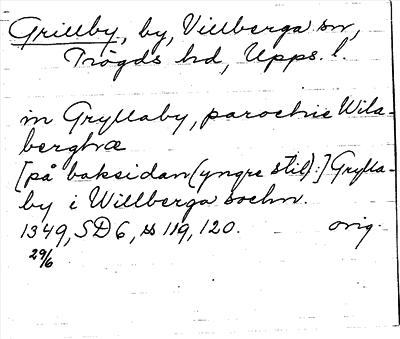 Grillby, by, Villberga sn,
Trögds hd, Upps. l.
in Gryllaby, parochie Wila-
berghæ
[på baksidan (yngre stil):] Grylla-
by i Willberga sochn.
1349, SD 6, s 119, 120. orig.
29/6